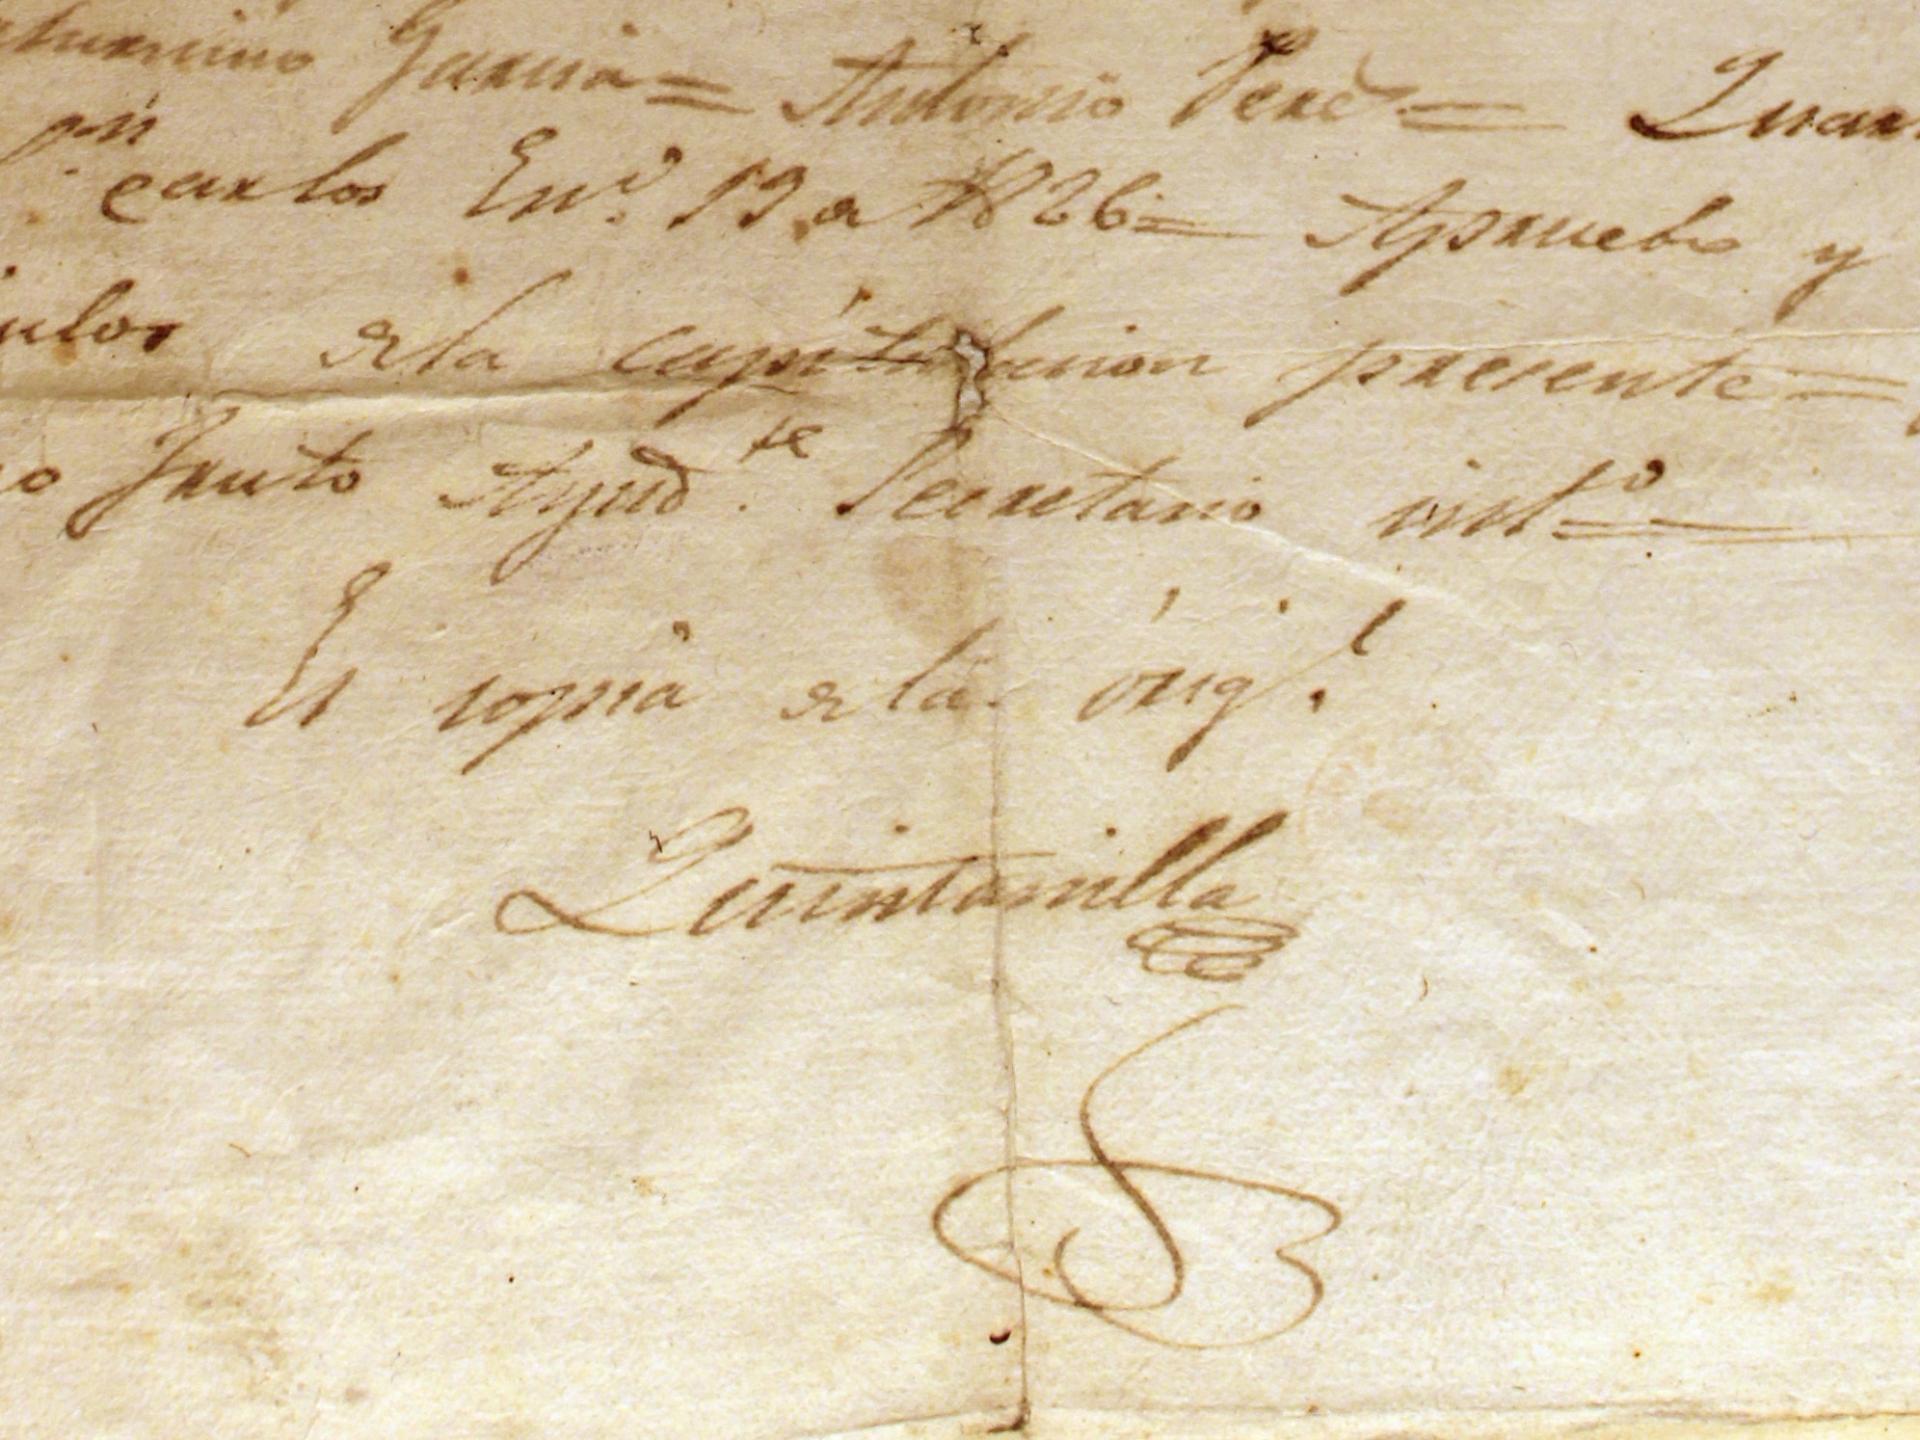 Garcia = Antonio Perez = Quar
Sn Carlos Eno. 19 de 1826 = Apruebo y
culos de la capitulacion presente =
Fruto Ayudte. Secretario intº =
Es copia de la origl.
Quintanilla